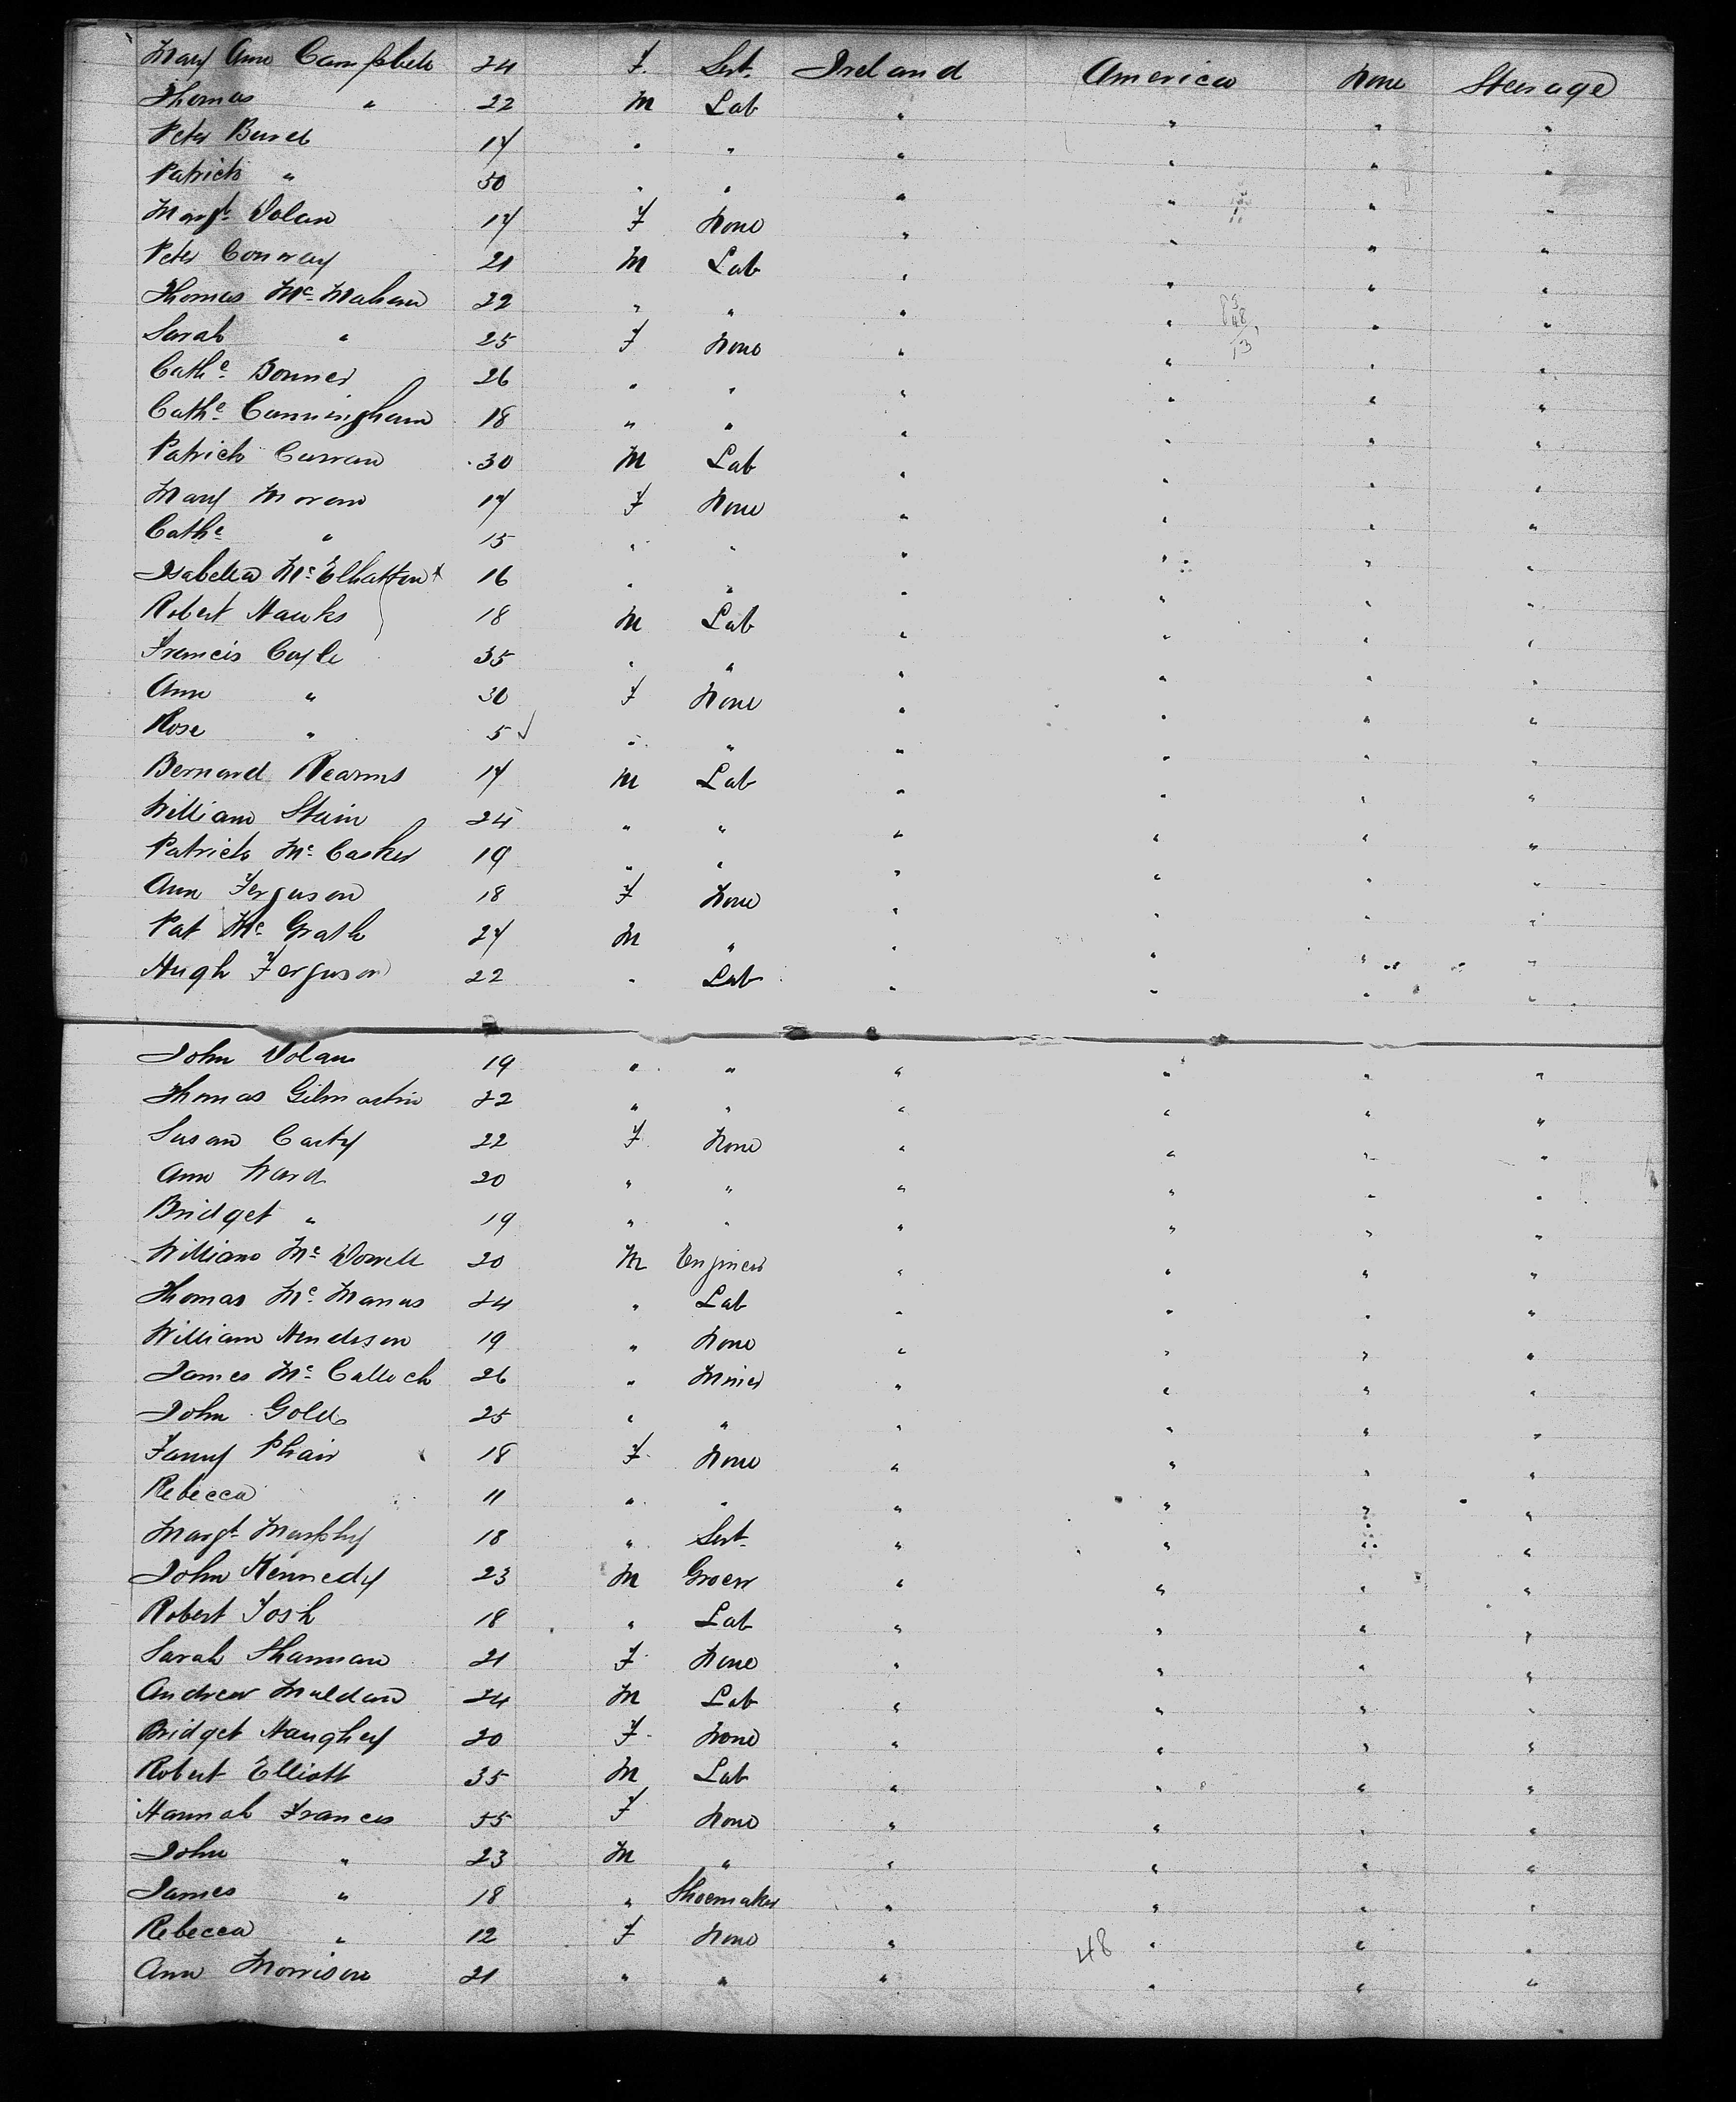 Mary Ann Campbell 24 F. Sert. Ireland America None Steerage
Thomas " 22 M Lab " " " "
Peter 17 " " " " " "
Patrick " 50 " " " " " "
Margt. Dolan 17 F None " " " "
Peter Conway 21 M Lab " " " "
Thomas Mc Mahan 22 " " " " " "
Sarah " 25 F None " " " "
Cathe. Bonner 26 " " " " " "
Cathe. Cunningham 18 " " " " " "
Patrick Curran 30 M Lab " " " "
Mary Moran 17 F None " " " "
Cathe " 15 " " " " " "
Isabella Mc Elhatton x 16 " " " " " "
Robert Hawks 18 M Lab " " " "
Francis Coyle 35 " " " " " "
Ann " 30 F None " " " "
Rose " 5 ✓ " " " " " "
Bernard Kearns 17 M Lab " " " "
William 24 " " " " " "
Patrick Mc Casker 19 " " " " " "
Ann Ferguson 18 F None " " " "
Pat Mc Grath 27 M " " " " "
Hugh Ferguson 22 " Lab " " " "
John Dolan 19 " " " " " "
Thomas Gilmartin 22 " " " " " "
Susan Carty 22 F None " " " "
Ann Ward 20 " " " " " "
Bridget " 19 " " " " " "
William Mc Dowell 20 M Engineer " " " "
Thomas Mc Manus 24 " Lab " " " "
William Henderson 19 " None " " " "
James Mc Culloch 26 " Miner " " " "
John Gold 25 " " " " " "
Fanny Phair 18 F None " " " "
Rebecca 11 " " " " " "
Margt. Murphy 18 " Sert. " " " "
John Kennedy 23 M Grocer " " " "
Robert Tosh 18 " Lab " " " "
Sarah Shannan 21 F None " " " "
Andrew Muldan 24 M Lab " " " "
Bridget Haughey 20 F None " " " "
Robert Elliott 35 M Lab " " " "
Hannah Frances 55 F None " " " "
John " 23 M " " " " "
James " 18 " Shoemaker " " " "
Rebecca " 12 F None " 48 " " "
Ann Morrison 21 " " " " " "